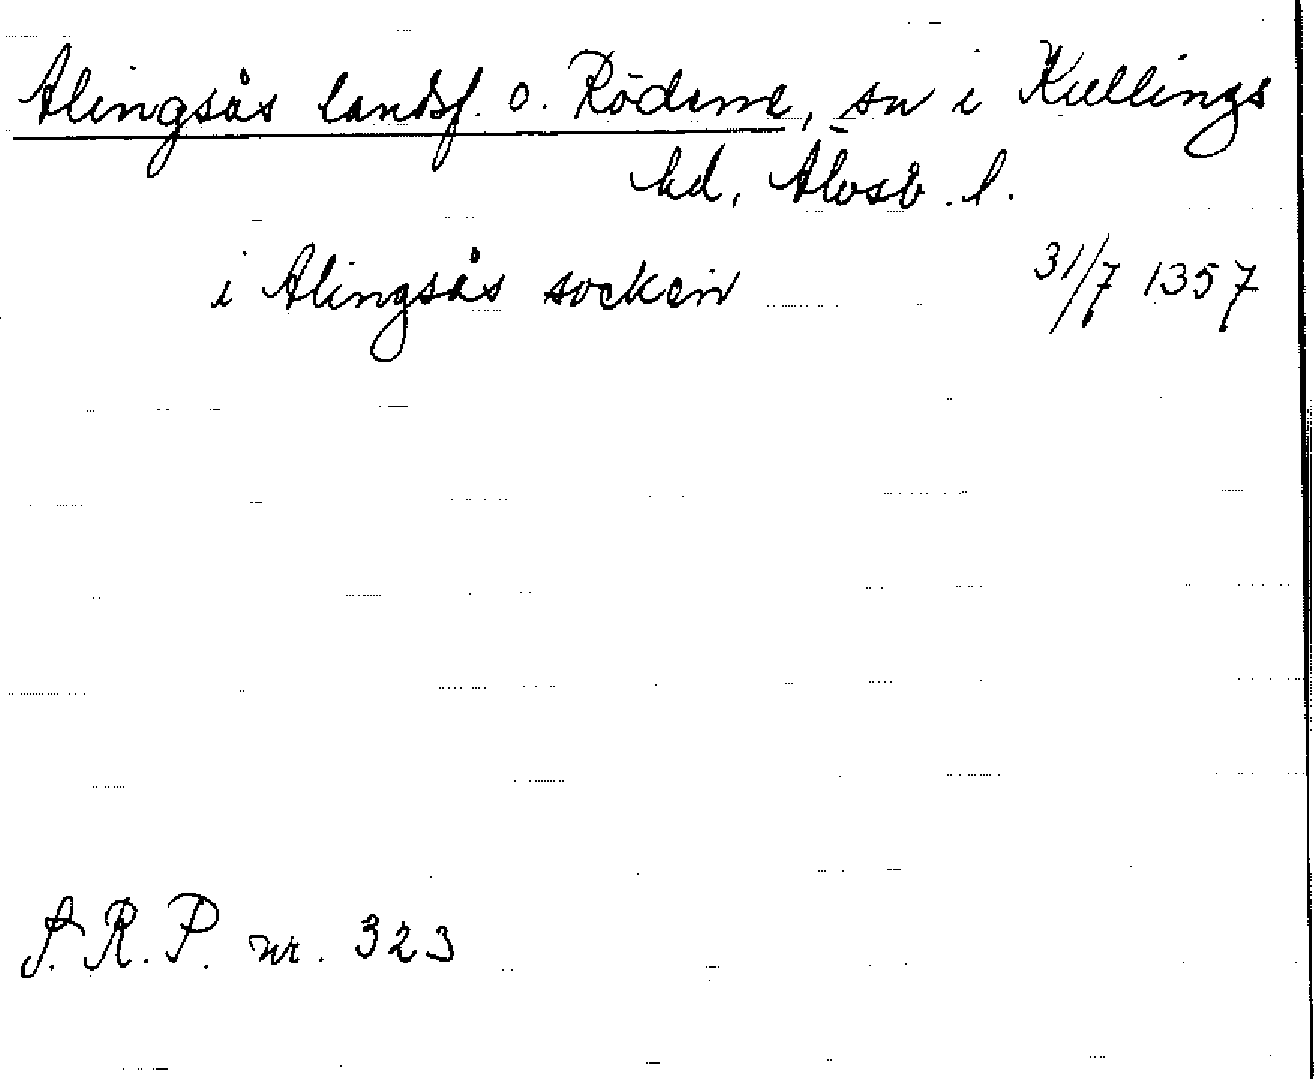 Alingsås landsf. o. Rödene, sn i Kullings
hd, Älvsb. l.
i Alingsås socken 31/7 1357
S.R.P. nr. 323